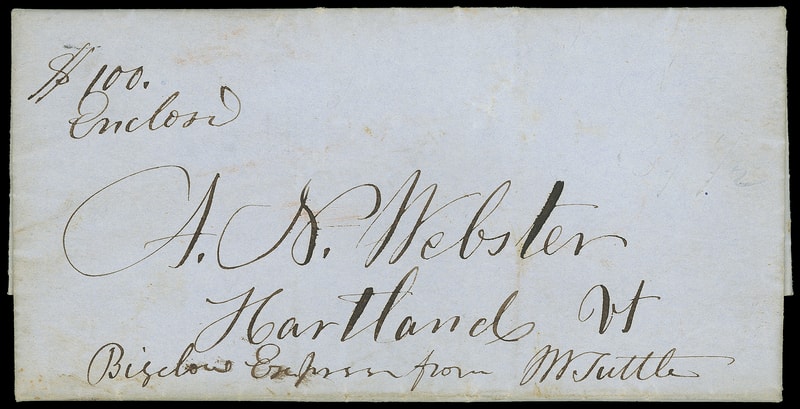 $100.
Enclosd
A. N. Webster
Hartland Vt
Bigelow Express from Mr Tuttle